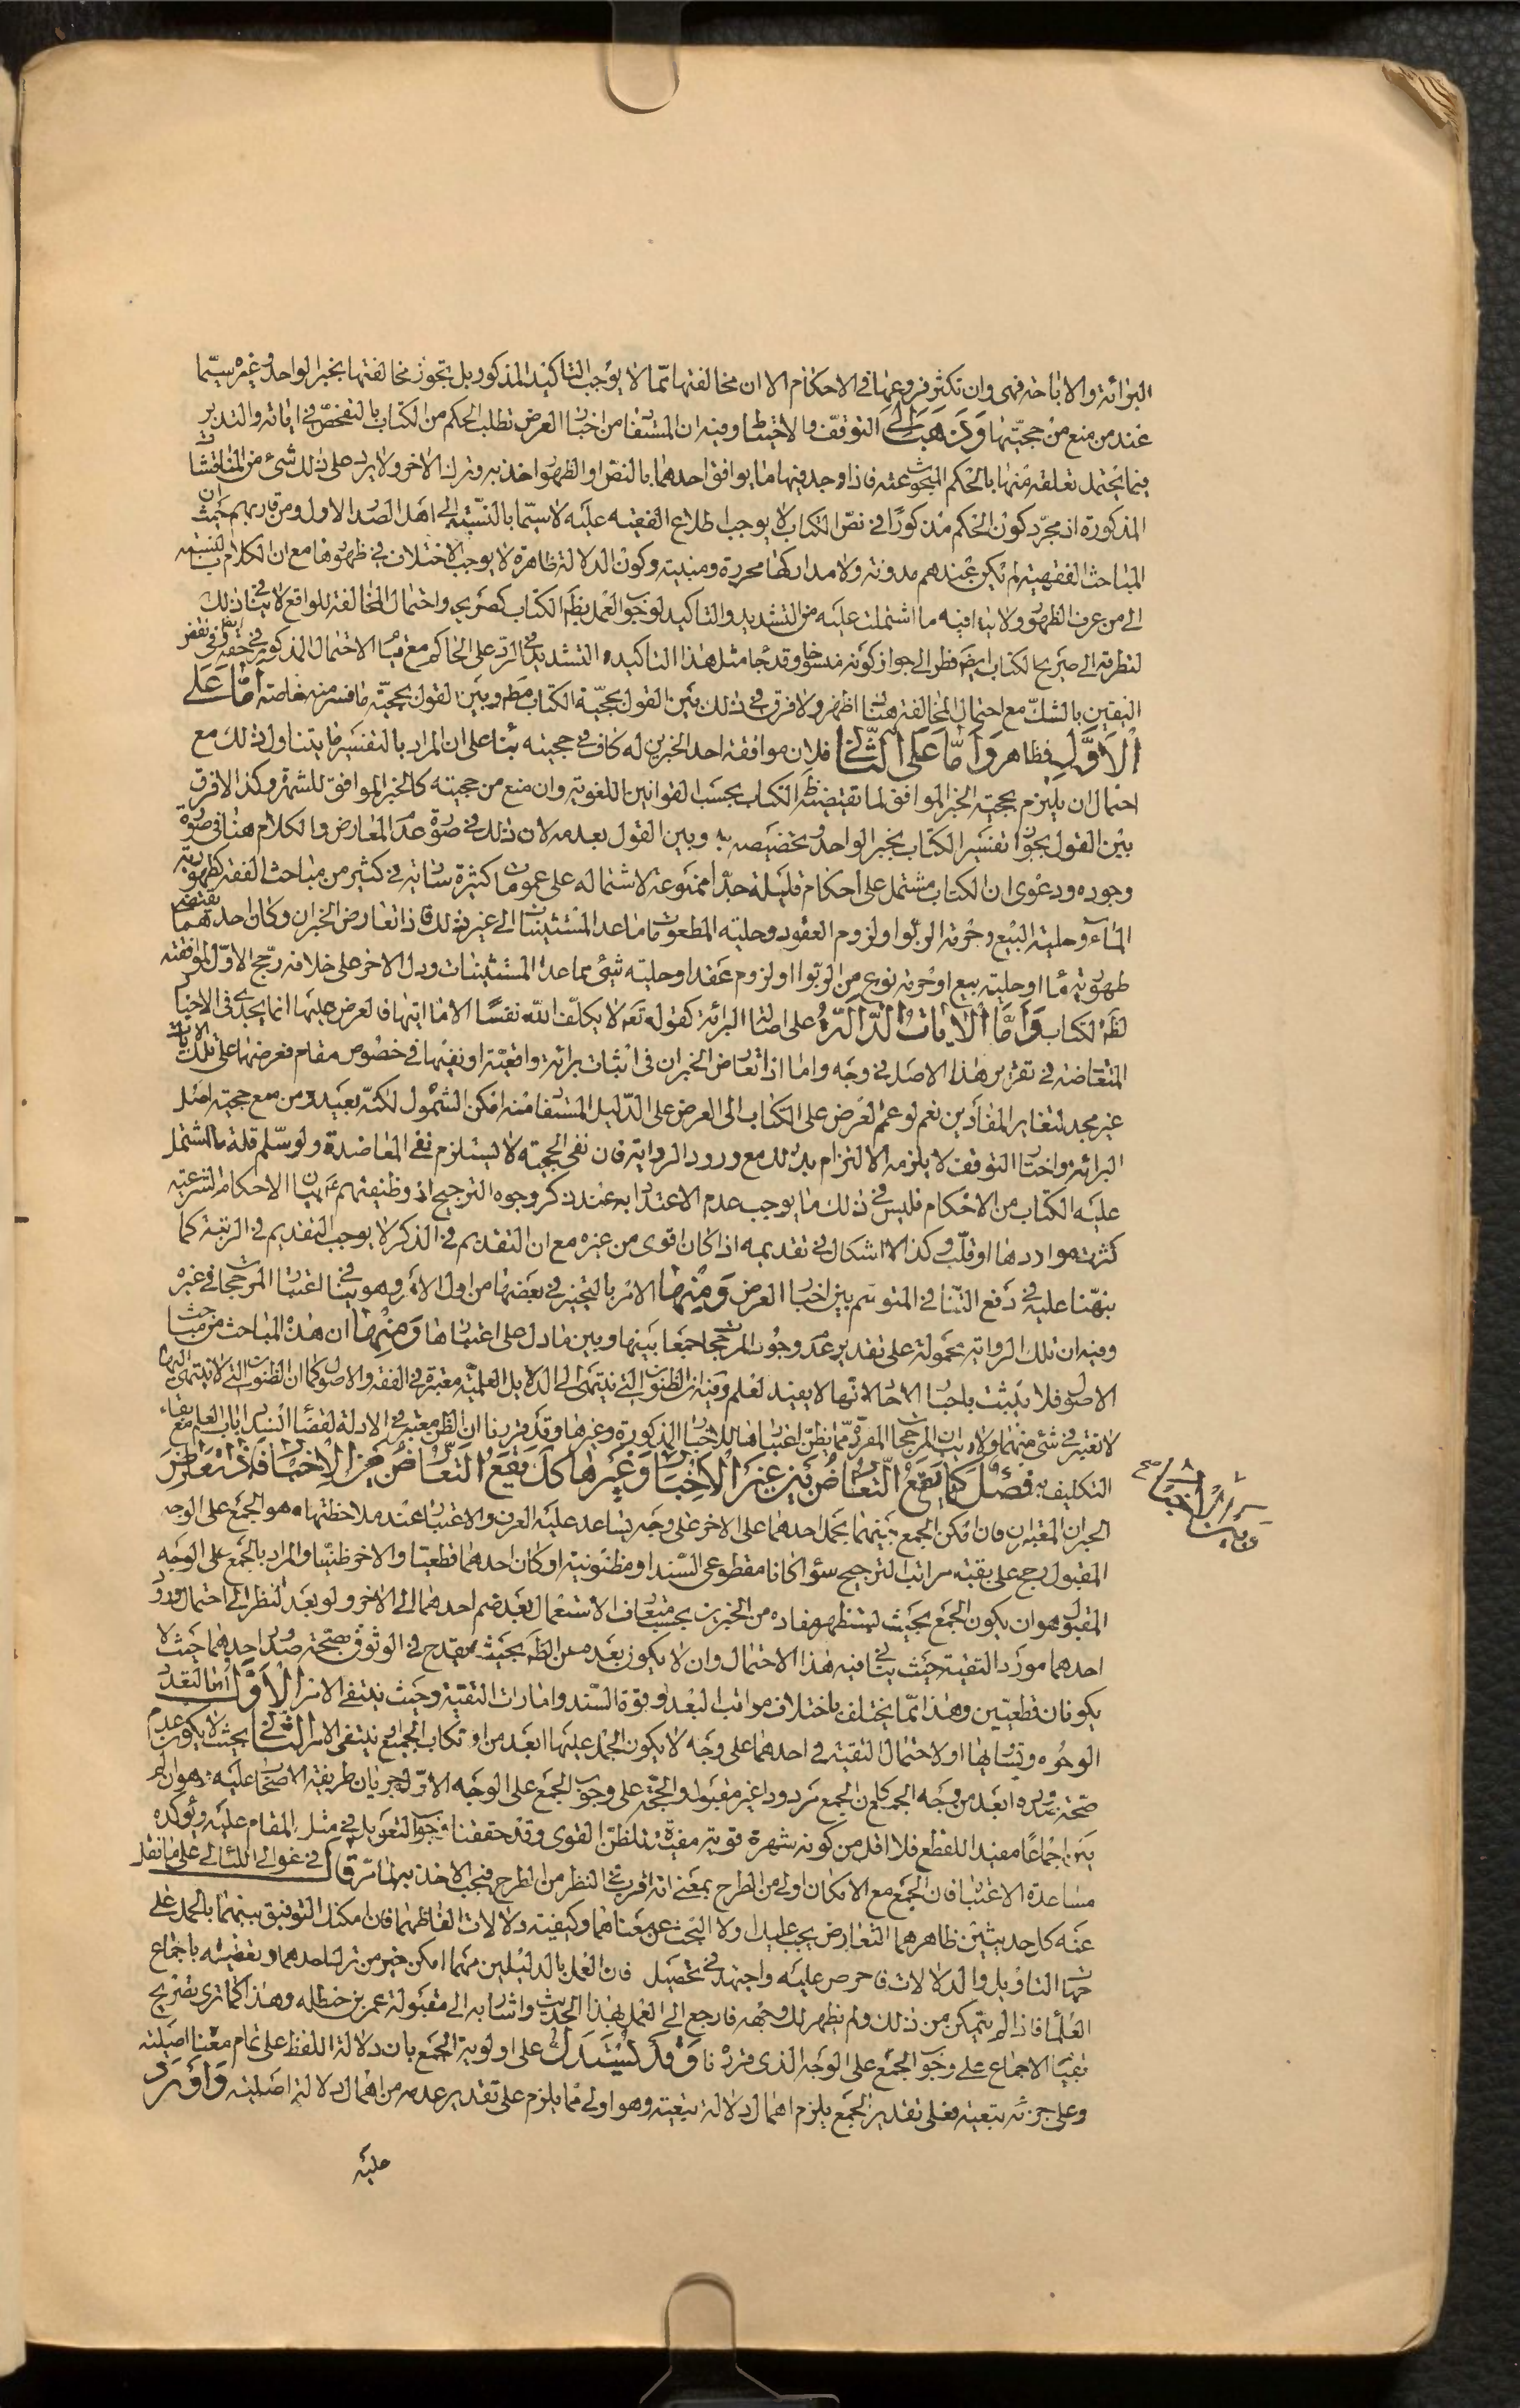 البرائة والاباحة فهى وان تكثر فروعها فى الاحكام الا ان مخالفتها مما لا يوجب التاكيد المذكور بل تجوز مخالفتها بخبر الواحد وغيره سيما
عند من منع من حجيتها وذهب الى التوقف والاحتياط وفيه ان المستفاد من اخبار العرض تطلب الحكم من الكتاب بالتفحص فى اياته والتدبر
فيما يحتمل تعلقه منها بالحكم المبحوث عنه فاذا وجد فيها ما يوافق احدهما بالنص او الظهور اخذ به وترك الاخر ولا يرد على ذلك شئ من المناقشات
المذكورة اذ مجرد كون الحكم مذكورا فى نص الكتاب لا يوجب اطلاع الفقيه عليه لا سيما بالنسبة الى اهل الصدر الاول ومن قاربهم حيث ان
المباحث الفقهية لم يكن عندهم مدونة ولا مداركها محررة ومبنية وكون الدلالة ظاهرة لا يوجب الاختلاف فى ظهورها مع ان الكلام بالنسبة
الى من عرف الظهور ولا ينافيه ما اشتملت عليه من التشديد والتاكيد لوجوب العمل بظهر الكتاب كصريحه واحتمال المخالفة للواقع لا ينافى ذلك
لتطرقه الى صريح الكتاب ايضا نظرا الى جواز كونه منسوخا وقد جاء مثل هذا التاكيد والتشديد فى الرد على الحاكم مع قيام الاحتمال المذكور فى حقه وفى نقض
اليقين بالشك مع احتمال المخالفة هناك اظهر ولا فرق فى ذلك بين القول بحجية الكتاب مطلقا وبين القول بحجية ما فسر منه خاصة اما على
الاول فظاهر واما على الثانى فلان موافقة احد الخبرين له كاف فى حجيته بناء على ان المراد بالتفسير ما يتناول ذلك مع
احتمال ان يلتزم بحجية الخبر الموافق لما تقتضيه ظهر الكتاب بحسب القوانين اللغوية وان منع من حجيته كالخبر الموافق للشهرة وكذا لا فرق
بين القول بجواز تفسير الكتاب بخبر الواحد وتخصيصه به وبين القول بعدمه لان ذلك فى صورة عدم المعارض والكلام هنا فى صورة
وجوده ودعوى ان الكتاب مشتمل على احكام قليلة جدا ممنوعة لاشتماله على عمومات كثيرة سارية فى كثير من مباحث الفقه كطهورية
الماء وحلية البيع وحرمة الربوا ولزوم العقود وحلية المطعومات ما عدا المستثنيات الى غير ذلك فاذا تعارض الخبران وكان احدهما يقتضى
طهورية ماء او حلية بيع او حرمة نوع من الربوا او لزوم عقد او حلية شئ مما عدا المستثنيات ودل الاخر على خلافه رجح الاول لموافقته
لظهر الكتاب واما الايات الدالة على اصالة البرائة كقوله تعالى لا يكلف الله نفسا الا ما اتيها فالعرض عليها انما يجدى فى الاخبار
المتعارضة فى تقرير هذا الاصل فى وجه واما اذا تعارض الخبران فى اثبات برائة واقعية او نفيها فى خصوص مقام فعرضها على تلك الايات
غير مجد لتغاير المفادين نعم لو عمم العرض على الكتاب الى العرض على الدليل المستفاد منه امكن الشمول لكنه بعيد ومن منع حجية اصل
البرائة واختار التوقف لا يلزمه الالتزام بذلك مع ورود الرواية فان نفى الحجية لا يستلزم نفى المعاضدة ولو سلم قلة ما اشتمل
عليه الكتاب من الاحكام فليس فى ذلك ما يوجب عدم الاعتداد به عند ذكر وجوه الترجيح اذ وظيفتهم بيان الاحكام الشرعية
كثرت مواردها او قلت وكذا لا اشكال فى تقديمه اذا كان اقوى من غيره مع ان التقديم فى الذكر لا يوجب التقديم فى الرتبة كما
نبهنا عليه فى دفع التنافى المتوهم بين اخبار العرض ومنها الامر بالتخيير فى بعضها من اول الامر وهو ينافى اعتبار المرجحات فى غيره
وفيه ان تلك الرواية محمولة على تقدير عدم وجود المرجحات جمعا بينها وبين ما دل على اعتبارها ومنها ان هذه المباحث من مباحث
الاصول فلا يثبت باخبار الاحاد لانها لا يفيد العلم وفيه ان الظنون التى ينتهى الى الدلايل العلمية معتبرة فى الفقه والاصول كما ان الظنون التى لا ينتهى اليها
لا تعتبر فى شئ منهما ولا ريب ان المرجحات المقررة مما يظن اعتبارها للاخبار المذكورة وغيرها وقد قررنا ان الظن معتبر فى الادلة لقضاء انسداد باب العلم مع بقاء
التكليف به فصل كما يقع التعارض بين غير الاخبار وغيرها كذا يقع التعارض بين الاخبار فاذا تعارض
الخبران المعتبران فان امكن الجمع بينهما بحمل احدهما على الاخر على وجه يساعد عليه العرف والاعتبار عند ملاحظتهما وهو الجمع على الوجه
المقبول رجح على بقية مراتب الترجيح سواء كانا مقطوعى السند او مظنونيه او كان احدهما قطعيا والاخر ظنيا والمراد بالجمع على الوجه
المقبول هو ان يكون الجمع بحيث يستظهر مفاده من الخبرين بحسب متعارف الاستعمال بعد ضم احدهما الى الاخر ولو بعد النظر الى احتمال ورود
احدهما مورد التقية حيث يتاتى فيه هذا الاحتمال وان لا يكون بعده عن الظهر بحيث يقدح فى الوثوق بصحة صدور احدهما حيث لا
يكونان قطعيين وهذا مما يختلف باختلاف مراتب البعد وقوة السند وامارات التقية وحيث ينتفى الامر الاول اما لتعدد
الوجوه وتساويها او لاحتمال التقية فى احدهما على وجه لا يكون الحمل عليها ابعد من ارتكاب الجمع او ينتفى الامر الثانى بحيث لا يكون عدم
صحة صدوره ابعد من وجه الجمع كان الجمع مردودا غير مقبول والحجة على وجوب الجمع على الوجه الاول جريان طريقة الاصحاب عليه وهو ان لم
يكن اجماعا مفيدا للقطع فلا اقل من كونه شهرة قوية مفيدة للظن القوى وقد حققنا جواز التعويل فى مثل المقام عليه ويؤكده
مساعدة الاعتبار فان الجمع مع الامكان اولى من الطرح بمعنى انه اقرب فى النظر من الطرح فيجب الاخذ به لما مر قال فى غوالى اللئالى على ما نقل
عنه كل حديثين ظاهرهما التعارض يجب عليك اولا البحث عن معناهما وكيفية دلالات الفاظهما فان امكنك التوفيق بينهما بالحمل على
جهات التاويل والدلالات فاحرص عليه واجتهد فى تحصيله فان العمل بالدليلين مهما امكن خير من ترك احدهما وتعطيله باجماع
العلماء فاذا لم يتمكن من ذلك ولم يظهر لك وجهه فارجع الى العمل بهذا الحديث واشار به الى مقبولة عمر بن حنظله وهذا كما ترى تصريح
بقيام الاجماع على وجوب الجمع على الوجه الذى قررنا وقد يستدل على اولوية الجمع بان دلالة اللفظ على تمام معناه اصلية
وعلى جزئه تبعية فعلى تقدير الجمع يلزم اهمال دلالة تبعية وهو اولى مما يلزم على تقدير عدمه من اهمال دلالة اصلية واورد
عليه